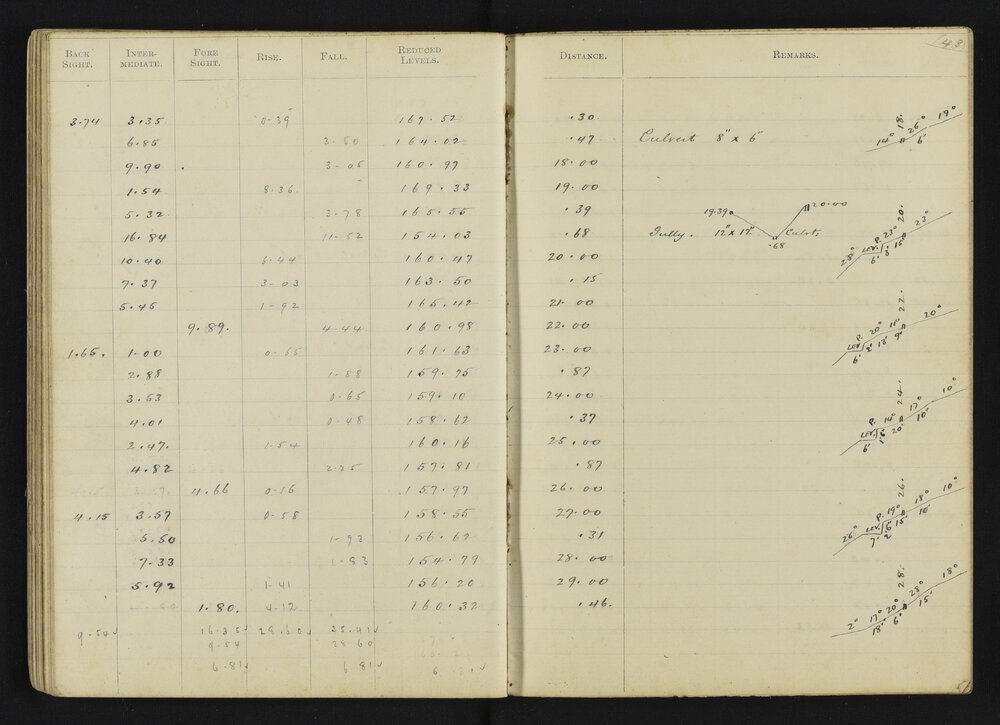 BACK SIGHT. INTER-MEDIATE. FORE SIGHT. RISE. FALL. REDUCED LEVELS. DISTANCE. REMARKS.
143
3.74 3.35 0.39 167.52 .30
6.85 3.50 164.02 .47 Culvert 8" x 6"
9.90 3.05 160.97 18.00
1.54 8.36 169.33 19.00
5.32 3.78 165.55 .39
16.84 11.52 154.03 .68 Gully. 12" x 12" Culvt
10.40 6.44 160.47 20.00
7.37 3.03 163.50 .15
5.45 1.92 165.42 21.00
9.89. 4.44 160.98 22.00
1.65. 1.00 0.65 161.63 23.00
2.88 1.88 159.75 .87
3.53 0.65 159.10 24.00
4.01 0.48 158.62 .37
2.47. 1.54 160.16 25.00
4.82 2.35 157.81 .87
4.66 0.16 157.97 26.00
4.15 3.57 0.58 158.55 27.00
5.50 1.93 156.62 .31
7.33 1.83 154.79 28.00
5.92 1.41 156.20 29.00
1.80. 4.12 160.32 .46.
9.54 16.35 28.60 35.41
9.54 28.60
6.81 6.81 6
14° 18. 26° 19°
6'
19.39 20.00
.68
28° LEV. P. 23° 20. 23°
6' 3' 15'
LEV. P. 20° 11° 22. 20°
6' 2' 13' 9'
LEV. P. 14° 24. 17° 10°
6' 20' 10'
26° LEV. P. 19° 26. 18° 10°
7' 2' 6' 15' 10'
2° 17° 20° 28. 28° 18°
18' 6' 15'